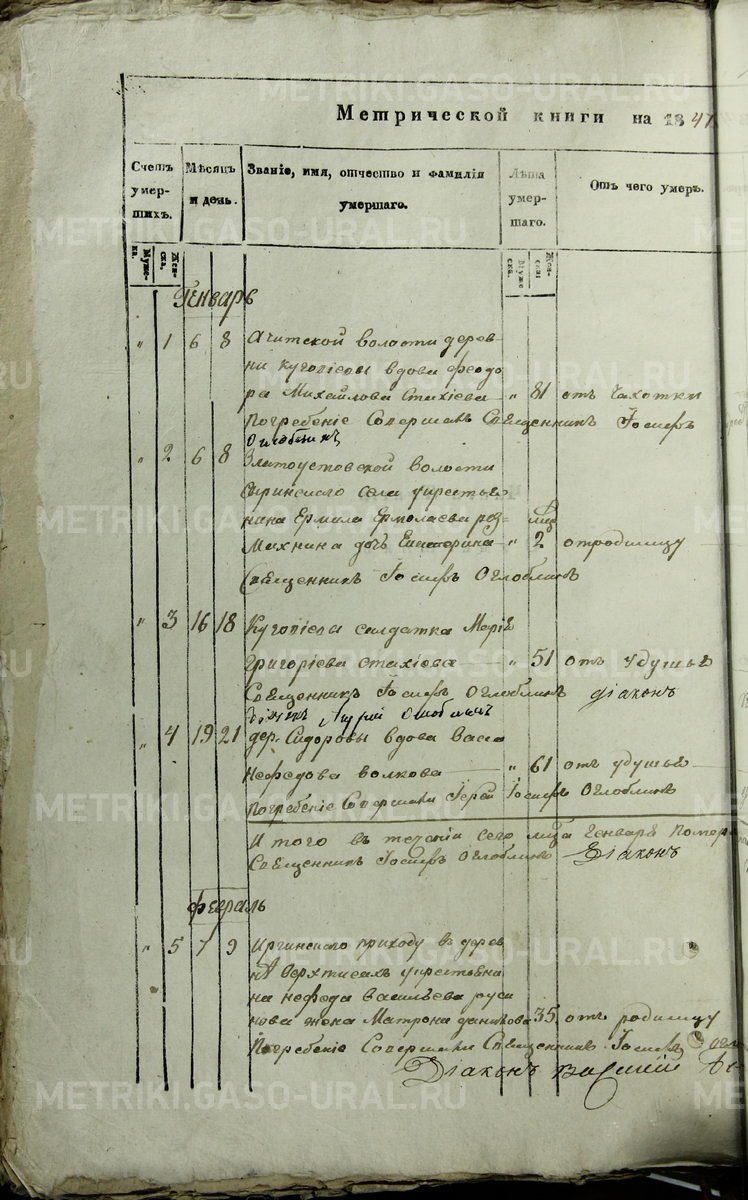 Метрической книги на 1847
Счетъ умер-шихъ. Мѣсяцъ и день. Званіе, имя, отчество и фамилія умершаго. Лѣта умер-шаго. Отъ чего умеръ.
Муже-ска. Жен-ска. Муже-ска. Жен-ска
Генварь
„ 1 6 8 Ачитской волости дерев
ни вдова Феодо
ра Михайлова Стахіева „ 81 отъ чахотки
Погребеніе Совершалъ Священникъ Іосифъ
Оглоблинъ
„ 2 6 8 Златоустовской волости
села крестья
нина Ермила Ермолаева
дочь Екатерина „ 2 отродимцу
Священникъ Іосифъ Оглоблинъ
„ 3 16 18 салдатка Марія
Григоріева Стахіева „ 51 отъ удушья
Священникъ Іосифъ Оглоблинъ діаконъ
Оглоблинъ
„ 4 19 21 дер. Сидоровы вдова Васса
Нефедова Волкова „ 61 отъ удушья
Погребеніе Совершали Іерей Іосифъ Оглоблинъ
Итого въ теченіи сего Генваря помер
Священникъ Іосифъ Оглоблинъ Діаконъ
Февраль
„ 5 7 9 Иргинскаго приходу въ дерев
нѣ крестьяни
на Нефеда Васильева Руси
нова жена Матрона 35 отъ родимцу
Погребеніе Совершали Священникъ Іосифъ
Діаконъ Василій
METRIKI.GASO-URAL.RU